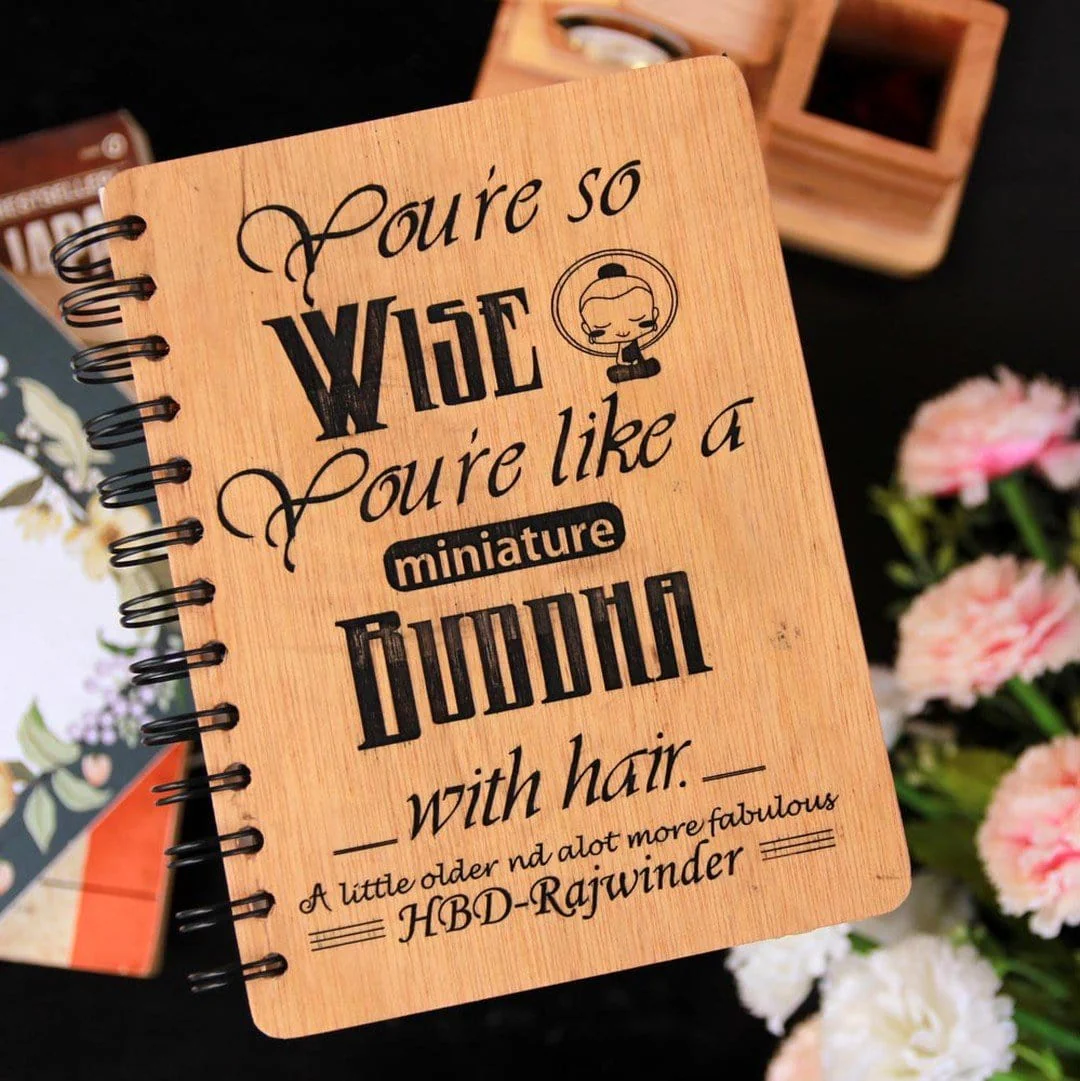 You're so
WISE
You're like a
miniature
BUDDHA
with hair.
A little older nd alot more fabulous
HBD-Rajwinder
BESTSELLER